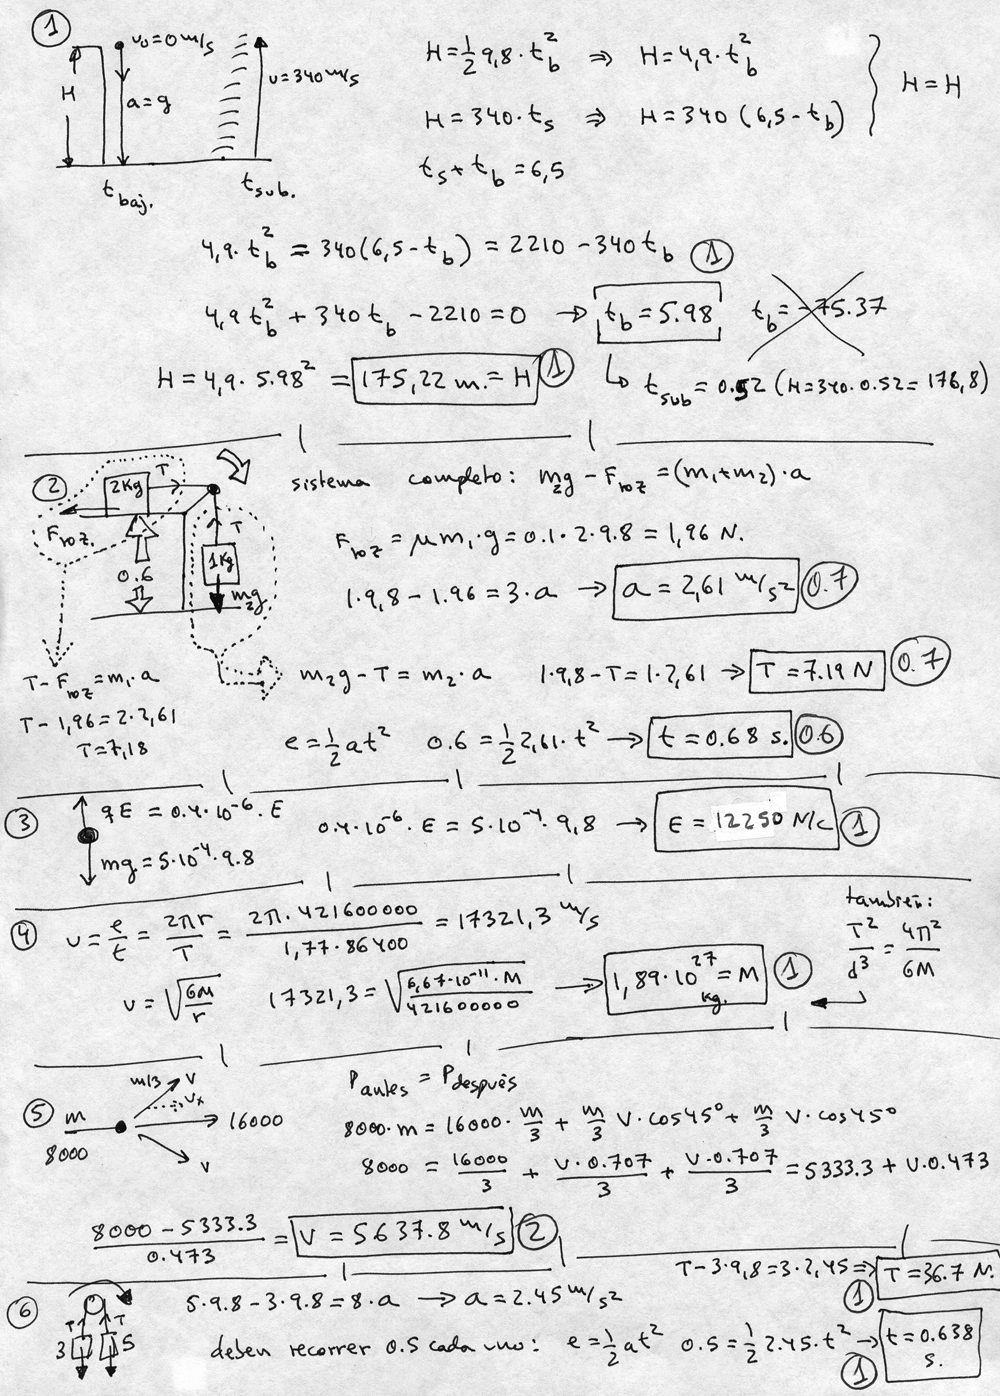 ①
v₀=0 m/s
H
a=g
v=340 m/s
t baj.
t sub.
H=½ 9,8·t_b² ⇒ H=4,9·t_b²
H=340·t_s ⇒ H=340 (6,5-t_b)
H=H
t_s+t_b=6,5
4,9·t_b² = 340(6,5-t_b) = 2210-340t_b ①
4,9t_b²+340t_b-2210=0 → t_b=5.98 t_b=-75.37
H=4,9·5.98² = 175,22 m.=H ①
↳ t_sub=0.52 (H=340·0.52=176,8)
②
2Kg T
F_roz.
T
1Kg
0.6
m₂g
sistema completo: m₂g-F_roz=(m₁+m₂)·a
F_roz=μm₁·g=0.1·2·9.8=1,96 N.
1·9,8-1.96=3·a → a=2,61 m/s² 0.7
T-F_roz=m₁·a
T-1,96=2·2,61
T=7,18
m₂g-T=m₂·a 1·9,8-T=1·2,61 → T=7.19 N 0.7
e=½at² 0.6=½2,61·t² → t=0.68 s. 0.6
③
qE=0.4·10⁻⁶·E
mg=5·10⁻⁴·9.8
0.4·10⁻⁶·E=5·10⁻⁴·9,8 → E=12250 N/c ①
④
v=e/t=2πr/T=2π·421600000/1,77·86400=17321,3 m/s
v=√(GM/r) 17321,3=√(6,67·10⁻¹¹·M/421600000) → 1,89·10²⁷=M kg. ①
tambien:
T²/d³=4π²/GM
⑤
m
8000
m/3 v
v_x
16000
v
P antes = P después
8000·m=16000·m/3+m/3 v·cos45°+m/3 v·cos45°
8000=16000/3+v·0.707/3+v·0.707/3=5333.3+v·0.473
8000-5333.3/0.473=v=5637.8 m/s ②
⑥
T T
3 5
5·9.8-3·9.8=8·a → a=2.45 m/s²
T-3·9,8=3·2,45 ⇒ T=36.7 N. ①
deben recorrer 0.5 cada uno: e=½at² 0.5=½2.45·t² → t=0.638 s. ①